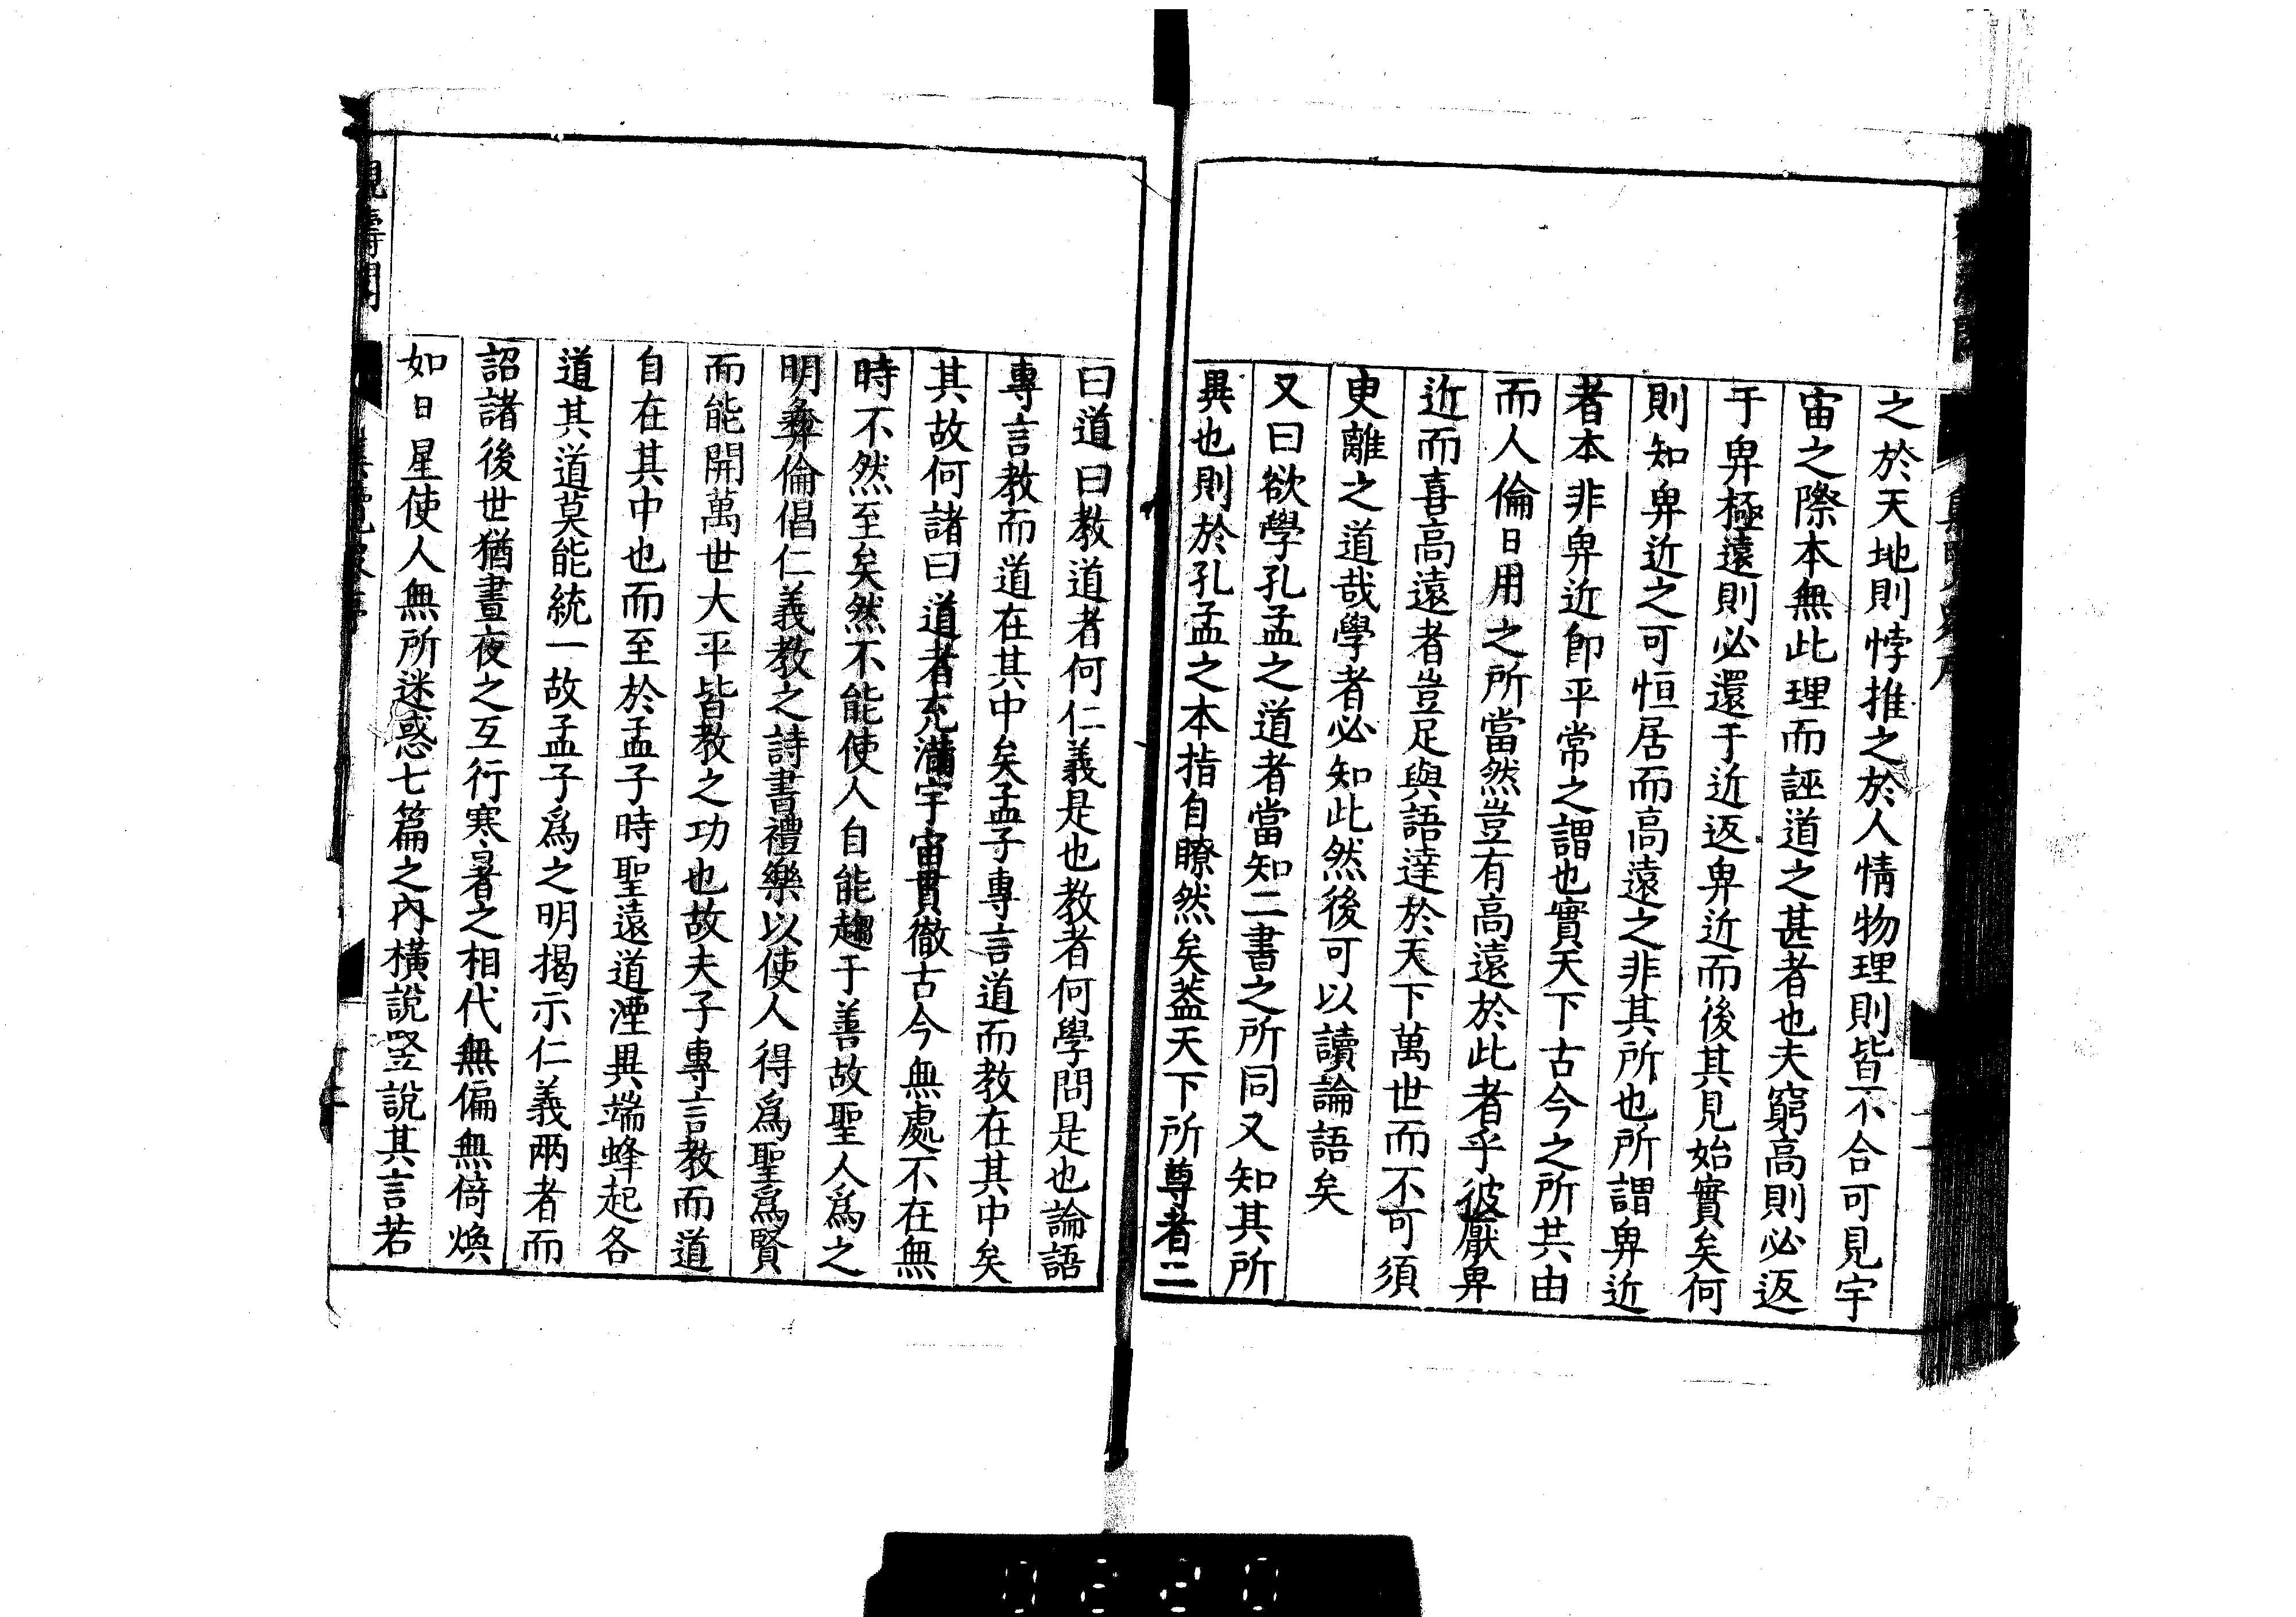 之於天地則悖推之於人情物理則皆不合可見宇
宙之際本無此理而誣道之甚者也夫窮高則必返
于卑極遠則必還于近返卑近而後其見始實矣何
則知卑近之可恒居而高遠之非其所也所謂卑近
者本非卑近即平常之謂也實天下古今之所共由
而人倫日用之所當然豈有高遠於此者乎彼厭卑
近而喜高遠者豈足與語達於天下萬世而不可須
臾離之道哉學者必知此然後可以讀論語矣
又曰欲學孔孟之道者當知二書之所同又知其所
異也則於孔孟之本指自瞭然矣蓋天下所尊者二
曰道曰教道者何仁義是也教者何學問是也論語
專言教而道在其中矣孟子專言道而教在其中矣
其故何諸曰道者充滿宇宙貫徹古今無處不在無
時不然至矣然不能使人自能趨于善故聖人爲之
明彝倫倡仁義教之詩書禮樂以使人得爲聖爲賢
而能開萬世大平皆教之功也故夫子專言教而道
自在其中也而至於孟子時聖遠道湮異端蜂起各
道其道莫能統一故孟子爲之明揭示仁義兩者而
詔諸後世猶晝夜之互行寒暑之相代無偏無倚煥
如日星使人無所迷惑七篇之內橫說竪說其言若
0220